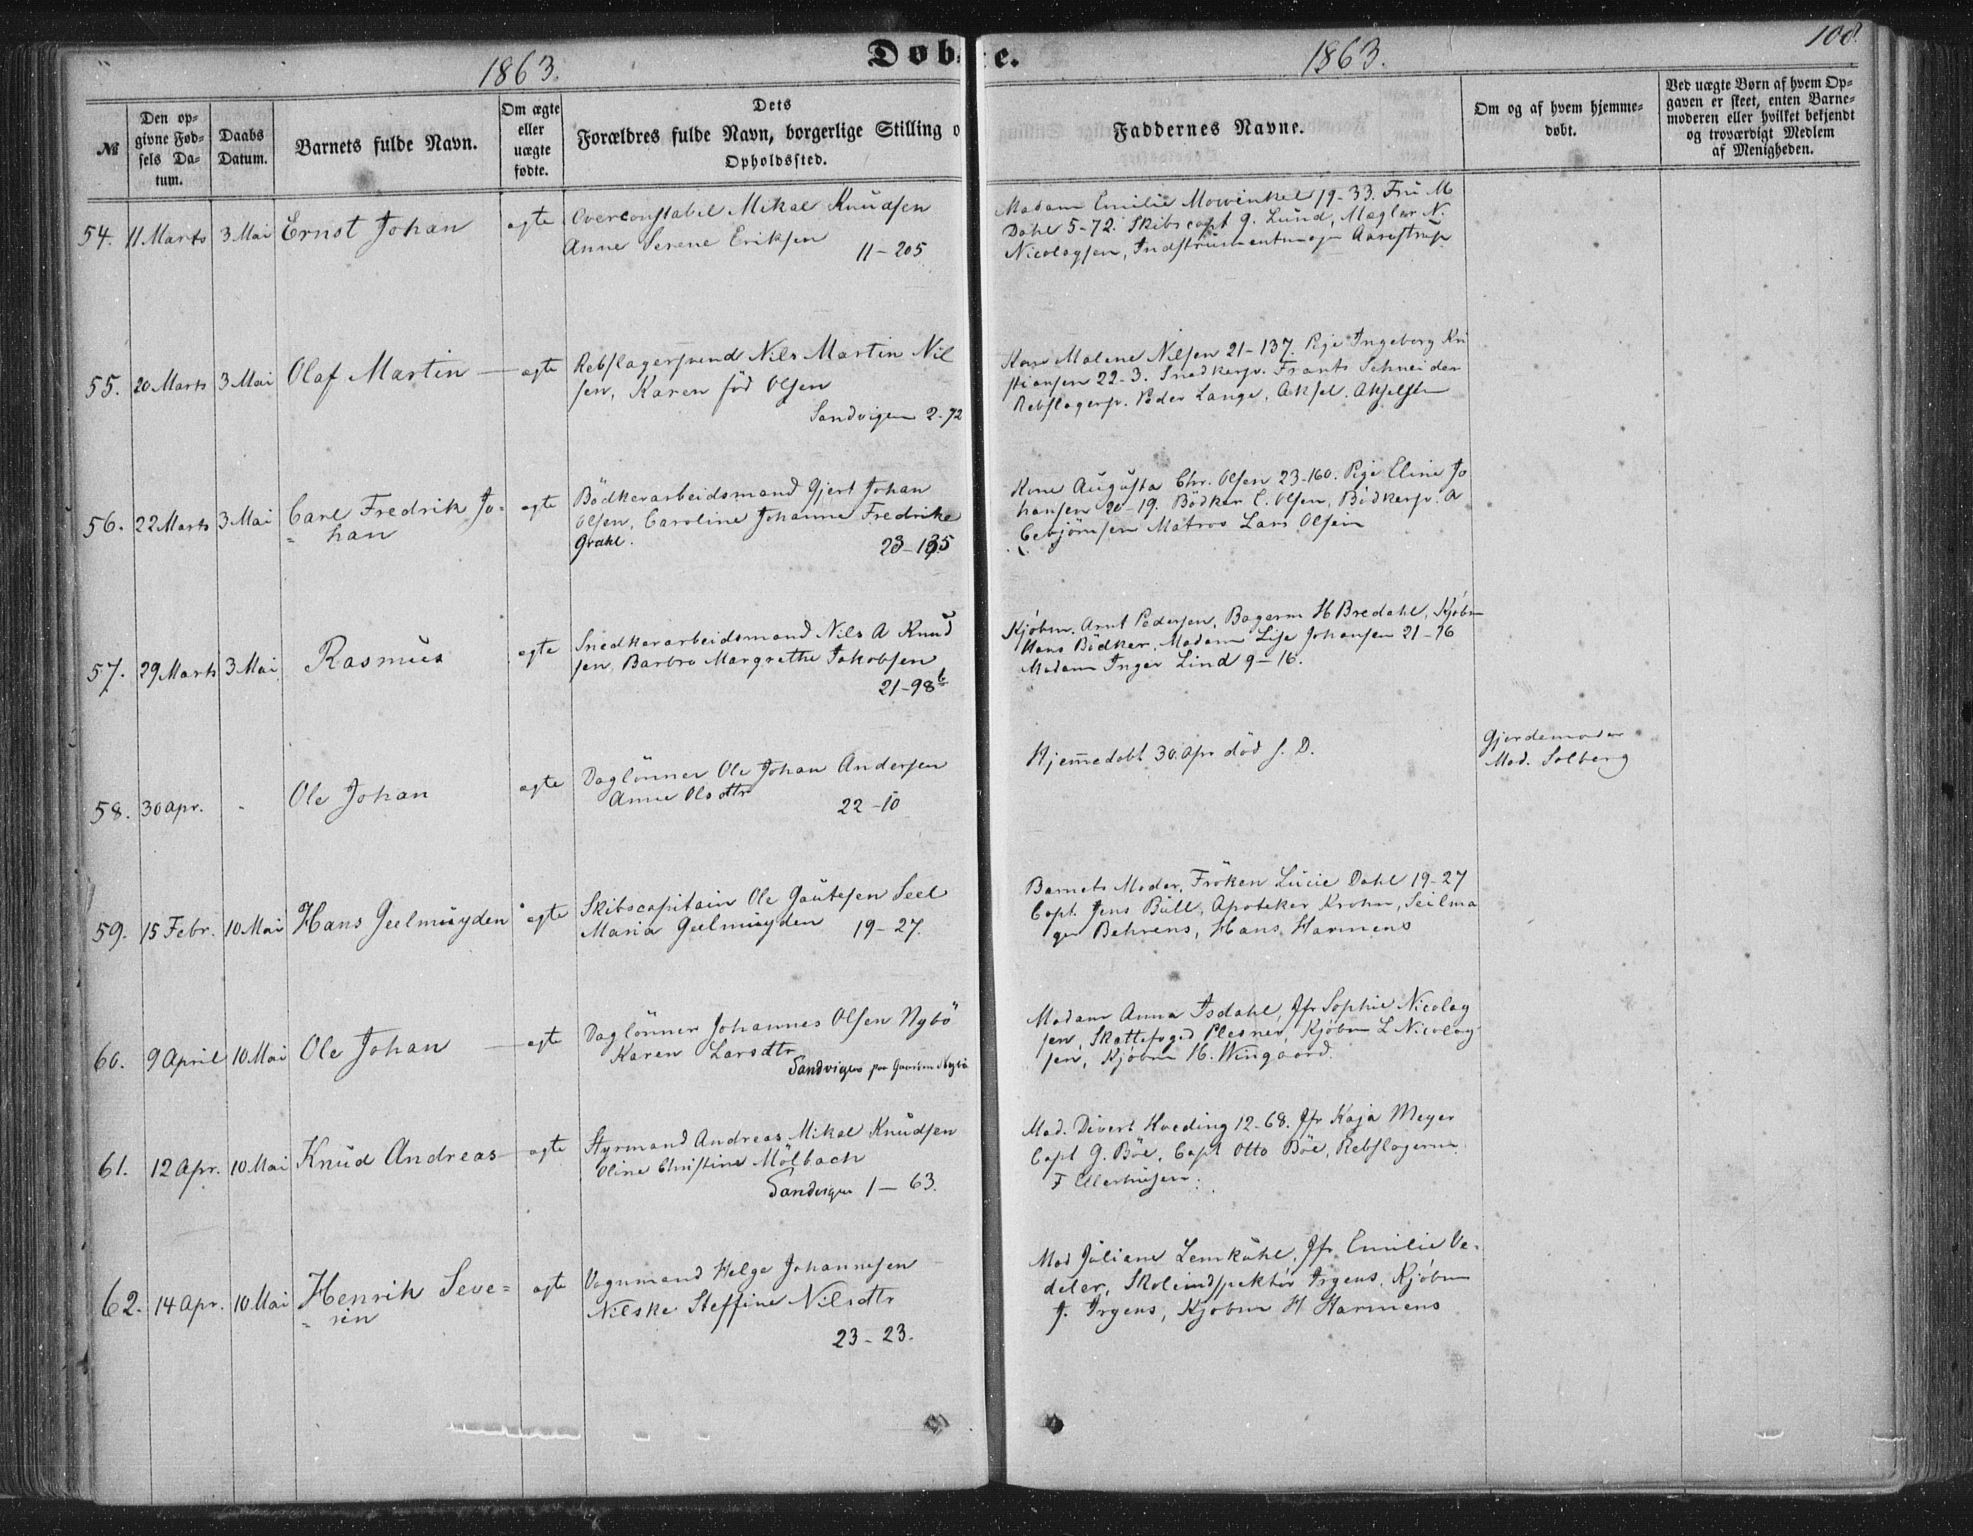 1863.
Døb
e.
1863.
108.
№
Den op-
givne Fød-
sels Da-
tum.
Daabs
Datum.
Barnets fulde Navn.
Om ægte
eller
uægte
fødte.
Dets
Forældres fulde Navn, borgerlige Stilling o
Opholdssted.
Faddernes Navne.
Om og af hvem hjemme-
døbt.
Ved uægte Børn af hvem Op-
gaven er skeet, enten Barne-
moderen eller hvilket bekjendt
og troværdigt Medlem
af Menigheden.
54. 11 Marts 3 Mai Ernst Johan ægte
Overconstabel Mikal Knudsen
Anne Serene Eriksen
11-205
Madam Emilie Mowinkel 19-33. Fru M
Dahl 5-72. Skibscapt J. Lund, Mægler N.
Nicolaysen, Aarestrup
55. 20 Marts 3 Mai Olaf Martin ægte
Rebslagersvend Nils Martin Nil
sen, Karen föd Olsen
Sandvigen 2-72
Kone Malene Nilsen 21-137. Pige Ingeborg Kri
stiansen 22-3. Snedkersv. Frants Schneider
Rebslagersv. Peder Lange, Aksel Akselsen
56. 22 Marts 3 Mai Carl Fredrik Jo-
han
ægte
Bödkerarbeidsmand Gjert Johan
Olsen, Caroline Johanne Fredrike
Grahl.
23-135
Kone Augusta Chr. Olsen 23-160. Pige Eline Jo
hansen 20-19. Bödker C. Olsen, Bödkersv. A
Matros Lars Olsen
57. 29 Marts 3 Mai Rasmus ægte
Snedkerarbeidsmand Nils A Knud
sen, Barbra Margrethe Jakobsen
21-98 b
Kjöbm. Arnt Pedersen, Bagerm H Bredahl, Kjöbm
Hans Bödker. Madam Lise Johansen 21-76
Madam Inger Lind 9-16.
58. 30 Apr. - Ole Johan ægte
Daglönner Ole Johan Andersen
Anne Olsdtr
22-10
Hjemmedöbt 30 Apr död s. D.
Gjordemoder
Mad. Solberg
59. 15 Febr. 10 Mai Hans Geelmuyden ægte
Skibscapitain Ole Gautesen Seel
Maria Geelmuyden 19-27.
Barnets Moder, Fröken Lucie Dahl 19-27
Capt. Jens Bull, Apoteker Krohn, Seilma
ger Behrens, Hans Harmens
60. 9 April 10 Mai Ole Johan ægte
Daglönner Johannes Olsen Nybö
Karen Larsdtr
Sandvigen
Madam Anna Isdahl, Jfr Sophie Nicolay
sen, Skattefoged Plesner, Kjöbm L Nicolay-
sen, Kjöbm H. Wingaard.
61. 12 Apr. 10 Mai Knud Andreas ægte
Styrmand Andreas Mikal Knudsen
Oline Christine Mölbach
Sandvigen 1-63.
Mad. Divert Kveding 12-68. Jfr Kaja Meyer
Capt G. Böe, Capt Otto Böe, Rebslagerm
F Ellerhusen.
62. 14 Apr. 10 Mai Henrik Seve-
rin
ægte
Vognmand Helge Johannesen
Nilske Steffine Nilsdtr
23-23.
Mad Juliane Lemkuhl, Jfr Emilie Ve-
deler, Skoleindspektör Irgens, Kjöbm
J. Irgens, Kjöbm H Harmens